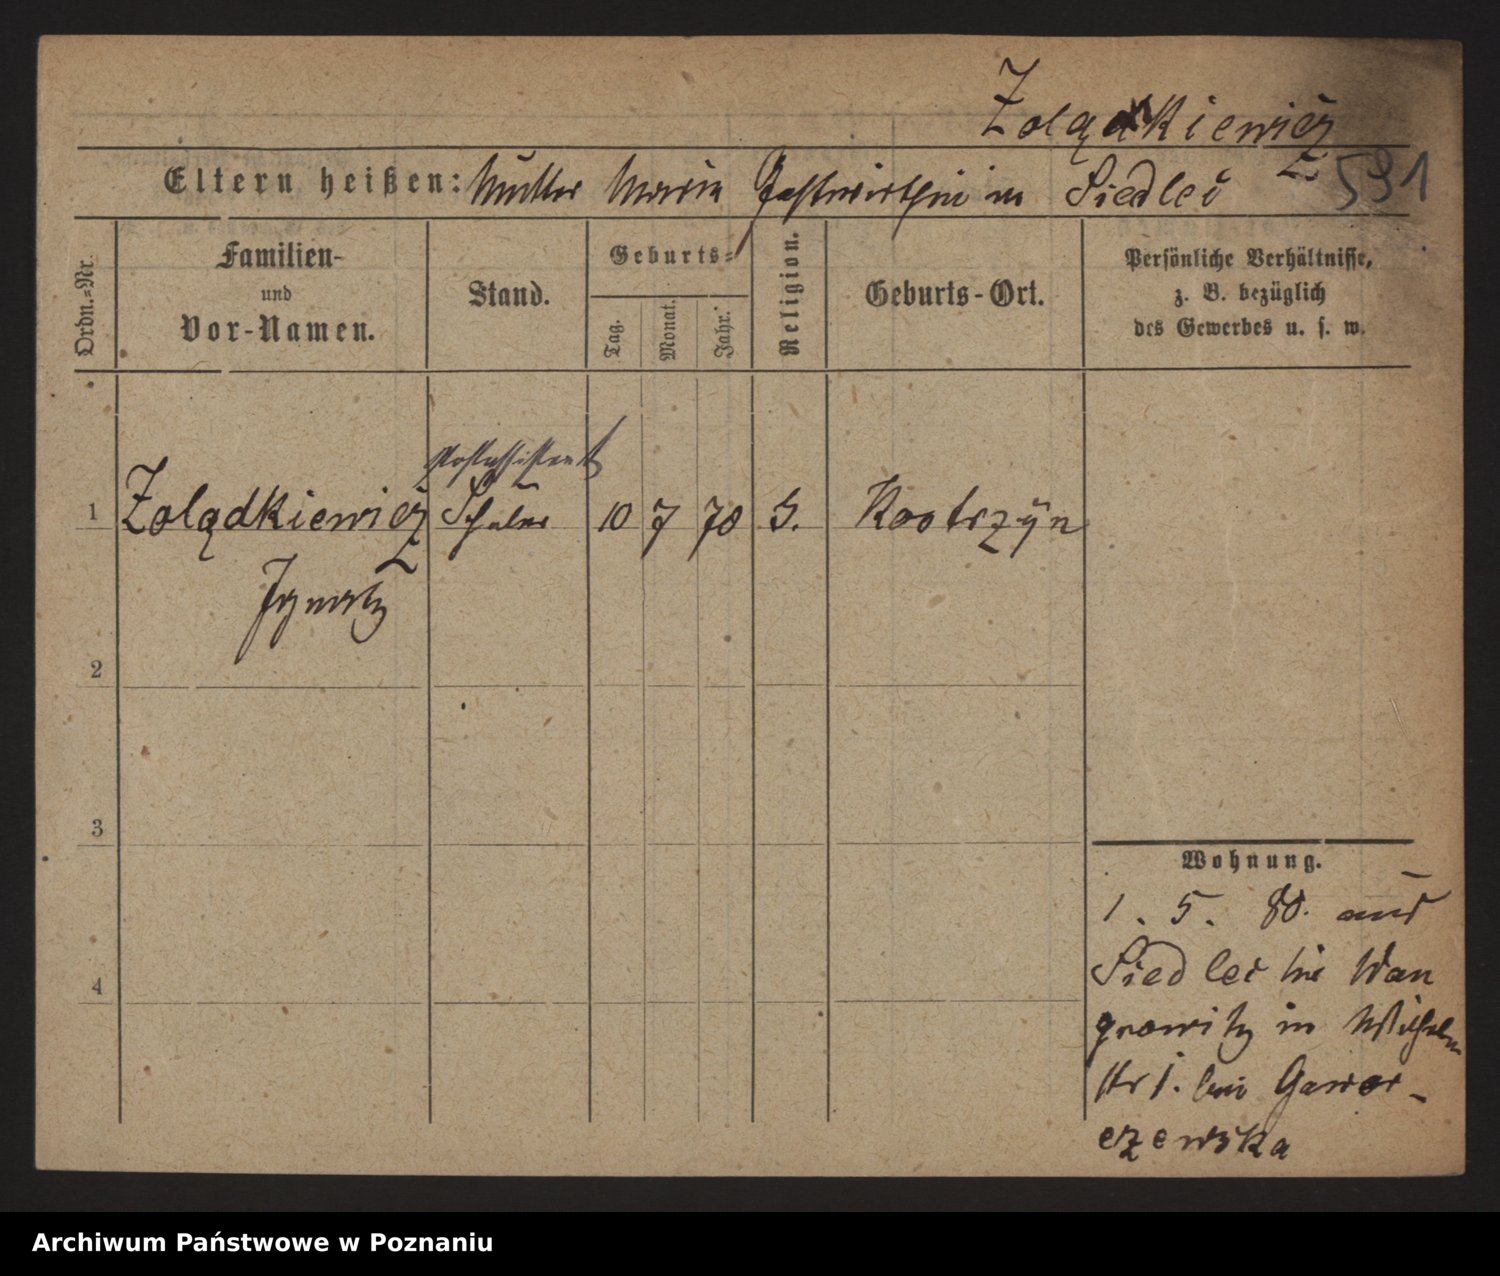 Zolądkiewicz
Eltern heißen: Mutter Maria Gastwirthin in Siedlec
591
Ordn.-Nr.
Familien-
und
Vor-Namen.
Stand.
Geburts-
Tag.
Monat.
Jahr.
Religion.
Geburts-Ort.
Persönliche Verhältnisse,
z. B. bezüglich
des Gewerbes u. s. w.
Postassistent
1 Zolądkiewicz Schüler 10 7 70 Kostrzyn
Ignatz
2
3
4
Wohnung.
1. 5. 80. aus
Siedlec hie Wan
growitz in Wilhelm
str 1. bei Gawor-
czewska
Archiwum Państwowe w Poznaniu